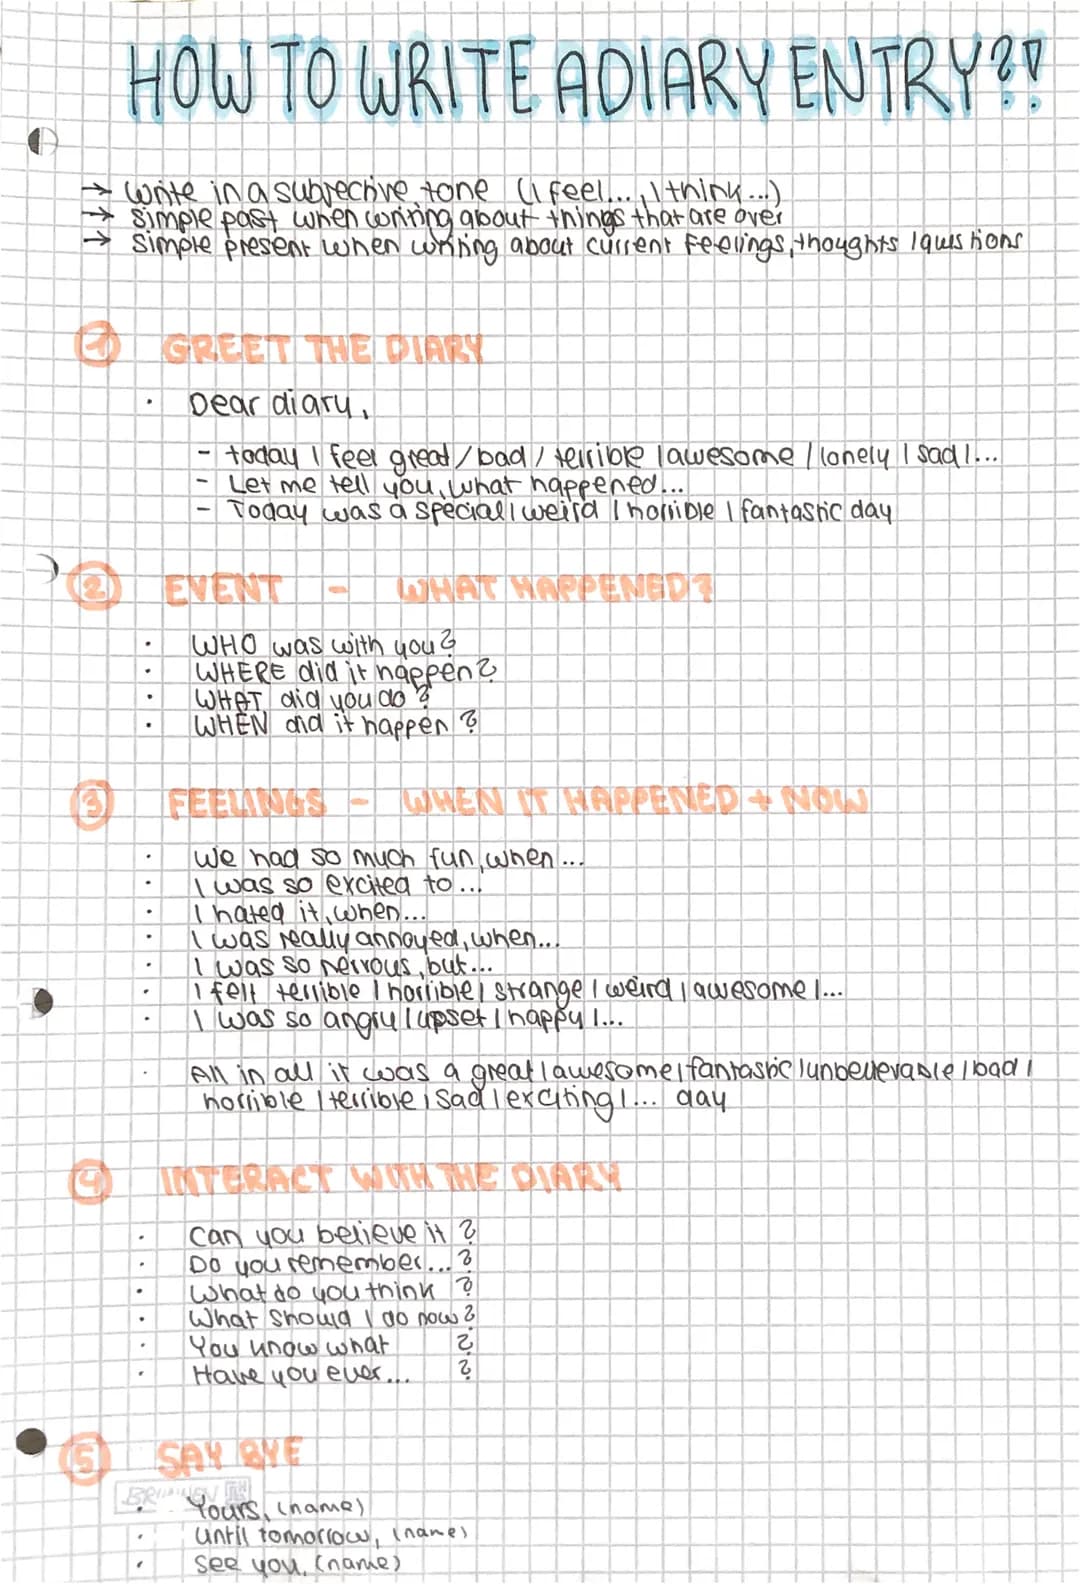 HOW TO WRITE A DIARY ENTRY?!
→ Write in a subjective tone (I feel..., I think...)
→ simple past when writing about things that are over
→ Simple present when writing about current feelings, thoughts / qustions
1 GREET THE DIARY
· Dear diary,
- today I feel great / bad / terrible / awesome / lonely / sad / ...
- Let me tell you, what happened...
- Today was a special / weird / horrible / fantastic day
2 EVENT - WHAT HAPPENED?
· WHO was with you?
· WHERE did it happen?
· WHAT did you do?
· WHEN did it happen?
3 FEELINGS - WHEN IT HAPPENED + NOW
· We had so much fun, when ...
· I was so excited to ...
· I hated it, when...
· I was really annoyed, when...
· I was so nervous, but ...
· I felt terrible / horrible / strange / weird / awesome / ...
· I was so angry / upset / happy / ...
· All in all it was a great / awesome / fantastic / unbelievable / bad /
horrible / terrible / sad / exciting / ... day
4 INTERACT WITH THE DIARY
· Can you believe it ?
· Do you remember... ?
· What do you think ?
· What should I do now ?
· You know what ?
· Have you ever... ?
5 SAY BYE
· Yours, (name)
· until tomorrow, (name)
· See you, (name)